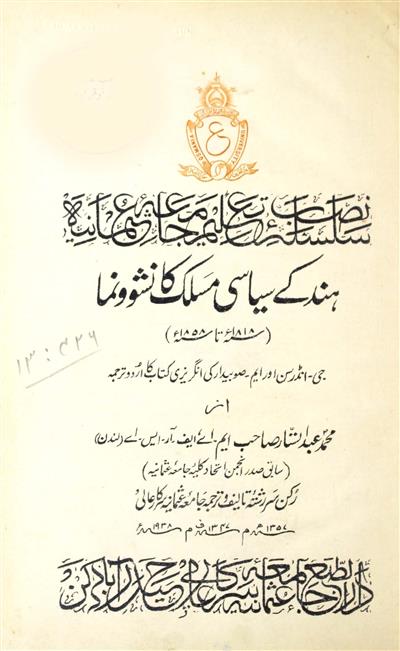 OSMANIA UNIVERSITY
سلسلۂ نصاب تعلیم جامعہ عثمانیہ
ہند کے سیاسی مسلک کا نشوونما
(۱۸۱۸ء تا ۱۸۵۸ء)
۱۳:۴۲۶
جی۔ انڈرسن اور ایم۔ صوبیدار کی انگریزی کتاب کا اردو ترجمہ
از
محمد عبدالستار صاحب ایم۔ اے، ایف۔ آر۔ ایس۔ اے (لندن)
(سابق صدر انجمن اتحاد کلیہ جامعہ عثمانیہ)
رکن سررشتۂ تالیف و ترجمہ جامعہ عثمانیہ سرکار عالی
۱۳۵۷ھ م ۱۳۴۷ف م ۱۹۳۸ء
دارالطبع جامعہ عثمانیہ سرکار عالی حیدرآباد دکن